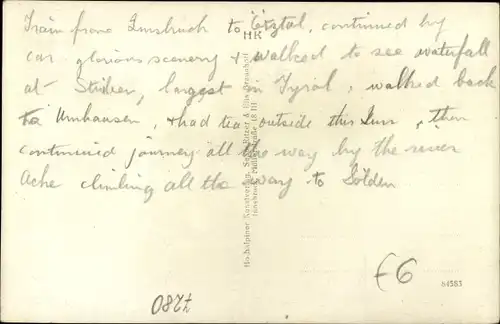 Train from Innsbruck to Ötztal, continued by
car glorious scenery & walked to see waterfall
at Stuiben, largest in Tyrol, walked back
to Umhausen, & had tea outside this Inn, then
continued journey all the way by the river
Ache climbing all the way to Sölden
HK
Hochalpiner Kunstverlag,
£6
84583
7280